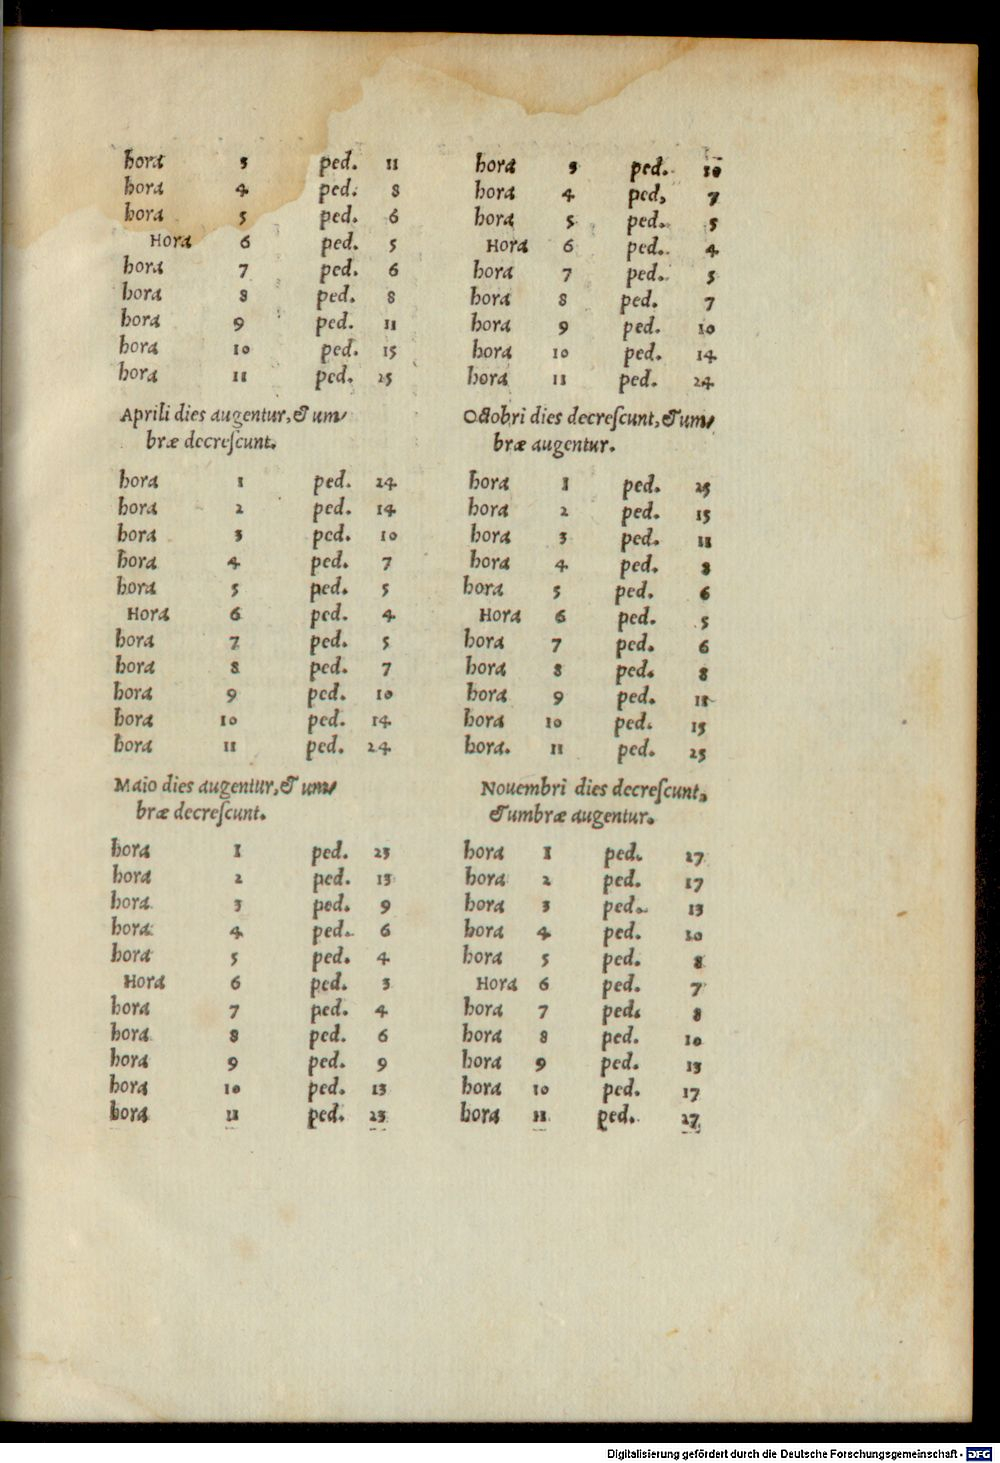 hora 3 ped. 11
hora 4 ped. 8
hora 5 ped. 6
Hora 6 ped. 5
hora 7 ped. 6
hora 8 ped. 8
hora 9 ped. 11
hora 10 ped. 15
hora 11 ped. 25
Aprili dies augentur, & um/
bræ decreſcunt.
hora 1 ped. 24
hora 2 ped. 14
hora 3 ped. 10
hora 4 ped. 7
hora 5 ped. 5
Hora 6 ped. 4
hora 7 ped. 5
hora 8 ped. 7
hora 9 ped. 10
hora 10 ped. 14
hora 11 ped. 24
Maio dies augentur, & um/
bræ decreſcunt.
hora 1 ped. 23
hora 2 ped. 13
hora 3 ped. 9
hora 4 ped. 6
hora 5 ped. 4
Hora 6 ped. 3
hora 7 ped. 4
hora 8 ped. 6
hora 9 ped. 9
hora 10 ped. 13
hora 11 ped. 23
hora 3 ped. 10
hora 4 ped, 7
hora 5 ped. 5
Hora 6 ped. 4
hora 7 ped. 5
hora 8 ped. 7
hora 9 ped. 10
hora 10 ped. 14
hora 11 ped. 24
Octobri dies decreſcunt, & um/
bræ augentur.
hora 1 ped. 25
hora 2 ped. 15
hora 3 ped. 11
hora 4 ped. 8
hora 5 ped. 6
Hora 6 ped. 5
hora 7 ped. 6
hora 8 ped. 8
hora 9 ped. 11
hora 10 ped. 15
hora. 11 ped. 25
Nouembri dies decreſcunt,
& umbræ augentur.
hora 1 ped. 27
hora 2 ped. 17
hora 3 ped. 13
hora 4 ped. 10
hora 5 ped. 8
Hora 6 ped. 7
hora 7 ped. 8
hora 8 ped. 10
hora 9 ped. 13
hora 10 ped. 17
hora 11 ped. 27
Digitalisierung gefördert durch die Deutsche Forschungsgemeinschaft - DFG